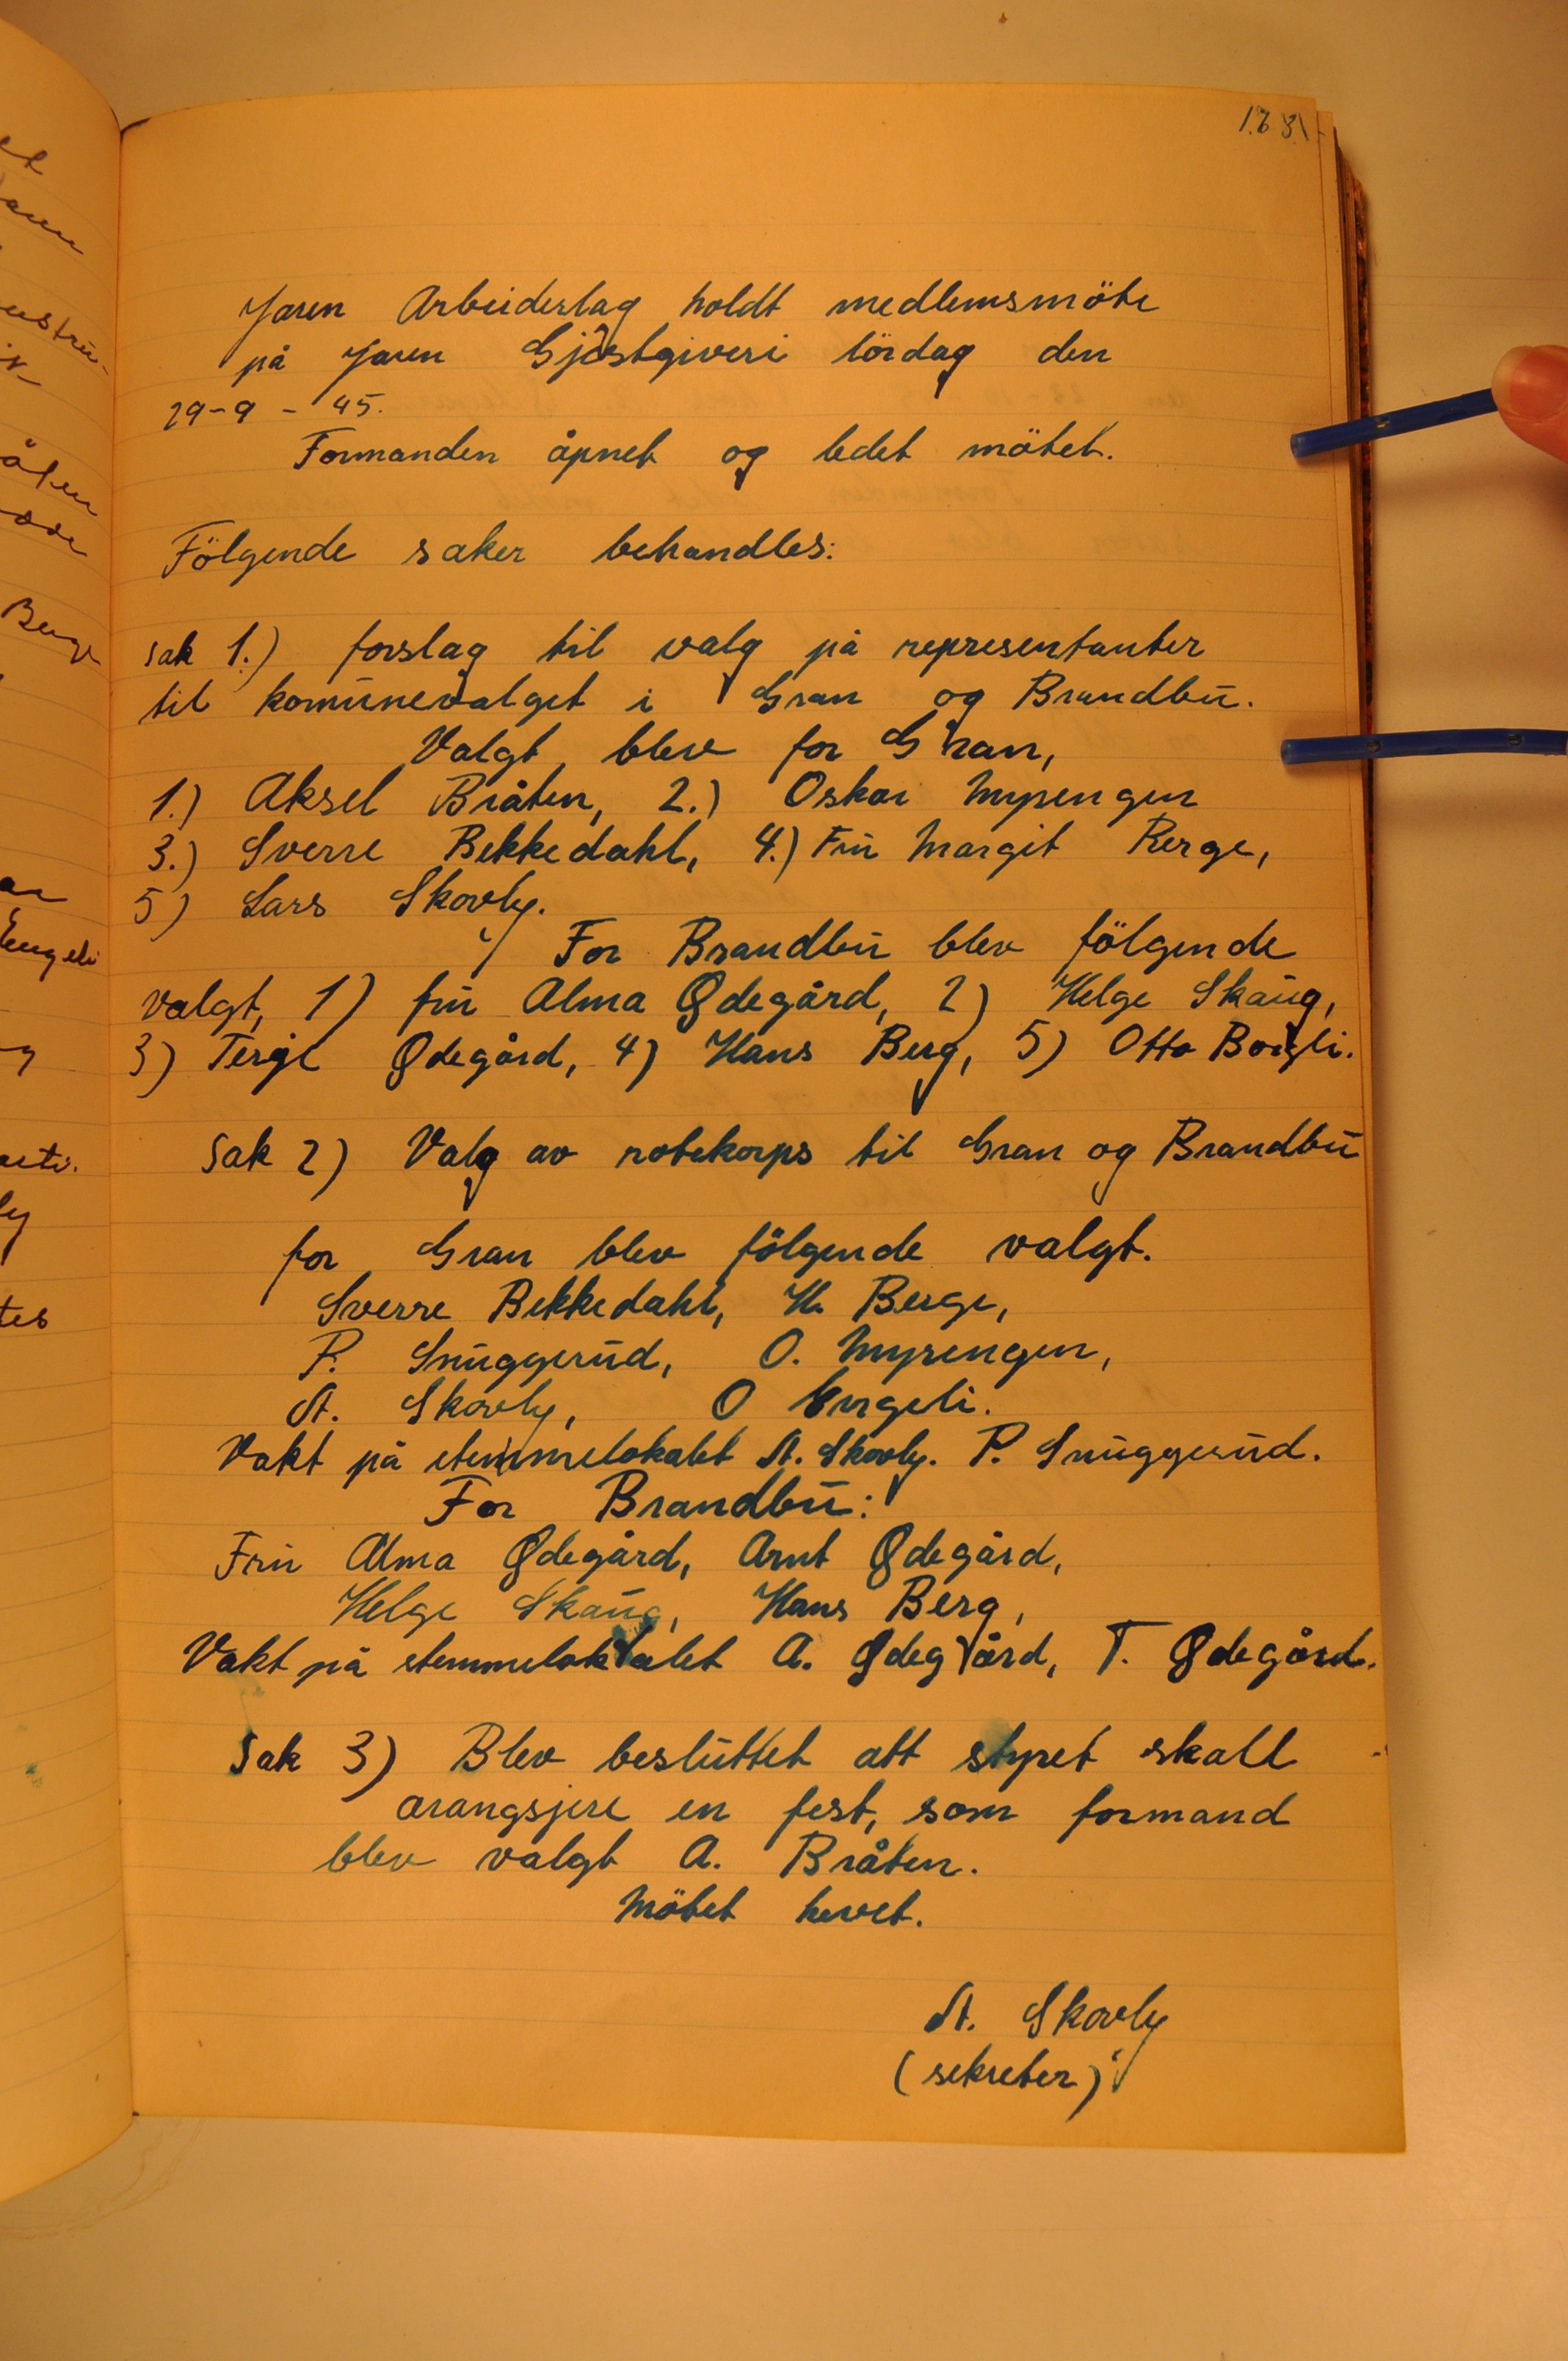 163.
Jaren Arbeiderlag holdt medlemsmöte
på Jaren Gjæstgiveri lördag den
29-9-45.
Formanden åpnet og ledet mötet.
Fölgende saker behandles:
Sak 1.) forslag til valg på representanter
til komunevalget i Gran og Brandbu.
Valgt blev for Gran,
1.) Aksel Bråten, 2.) Oskar Myrengen
3.) Sverre Bekkedahl, 4.) Fru Margit Berge,
5) Lars Skovly.
For Brandbu blev fölgende
valgt, 1) fru Alma Ødegård, 2) Helge Skaug,
3) Terje Ødegård, 4) Hans Berg, 5) Otto
Sak 2) Valg av rotekorps til Gran og Brandbu
for Gran blev fölgende valgt.
Sverre Bekkedahl, H. Berge,
P. Snuggerud, O. Myrengen,
A. Skovly, O Engeli.
Vakt på stemmelokalet A. Skovly. P. Snuggerud.
For Brandbu:
Fru Alma Ødegård, Arnt Ødegård,
Helge Skaug, Hans Berg,
Vakt på stemmelokalet A. Ødegård, T. Ødegård.
Sak 3) Blev besluttet att styret skall
arangsjere en fest, som formand
blev valgt A. Bråten.
Mötet hevet.
A. Skovly
(sekreter)